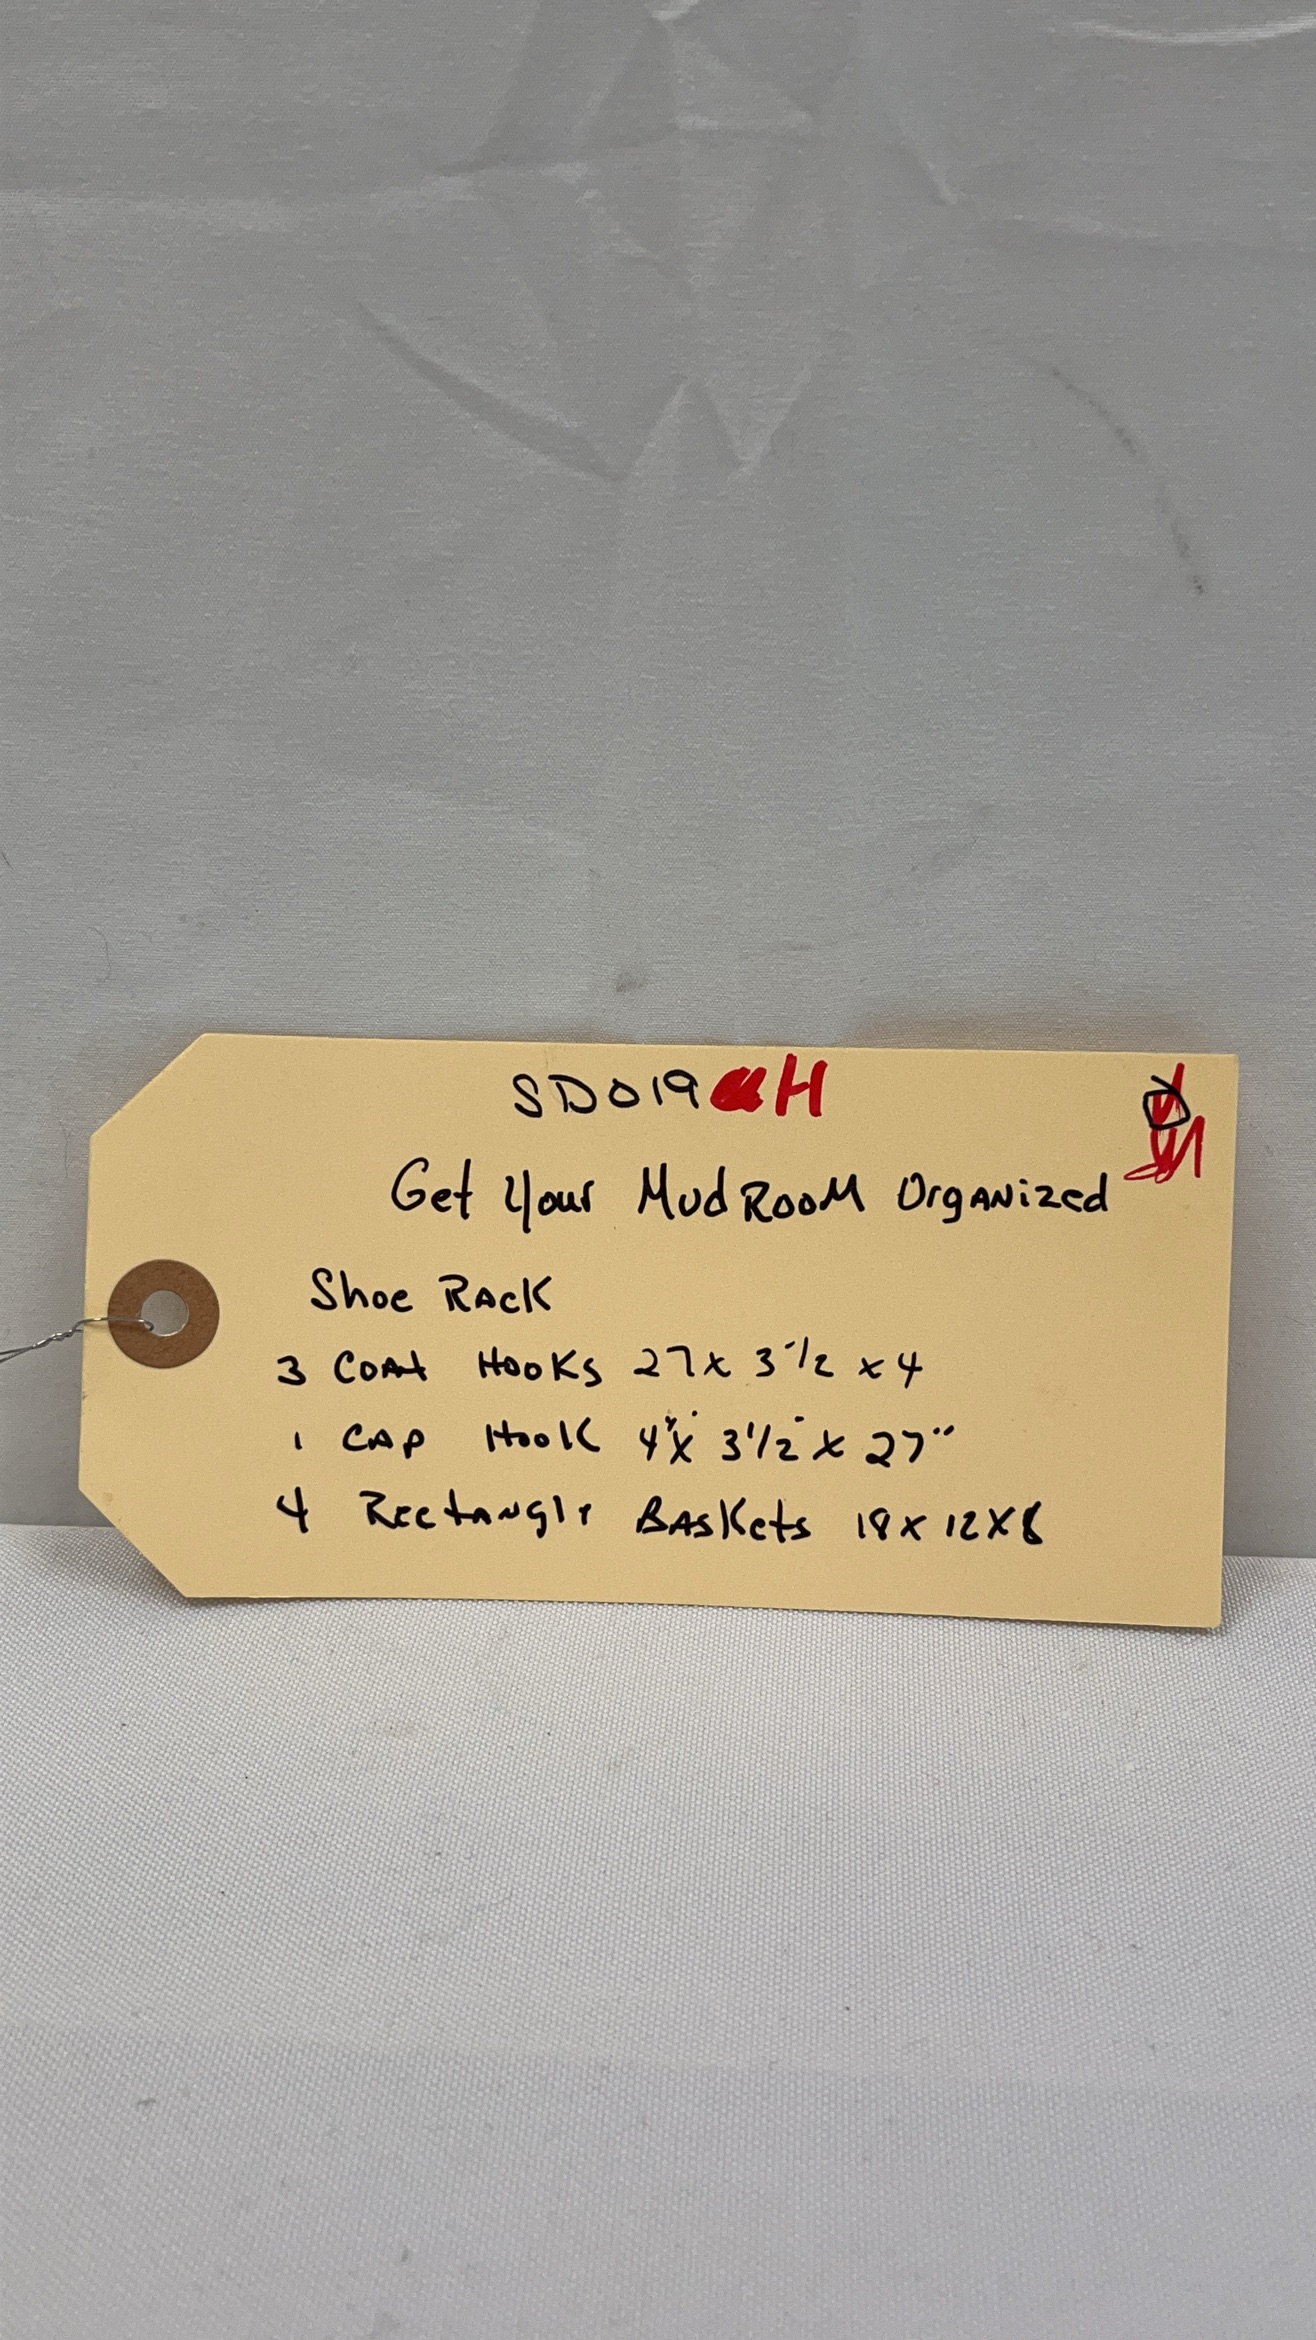 SD019 H
Get Your MudRooM OrgANized
Shoe RAck
3 COAt HOOKS 27 x 3 1/2 x 4
1 CAP HOOK 4" x 3 1/2" x 27"
4 RectANgle BASKets 18 x 12 x 8